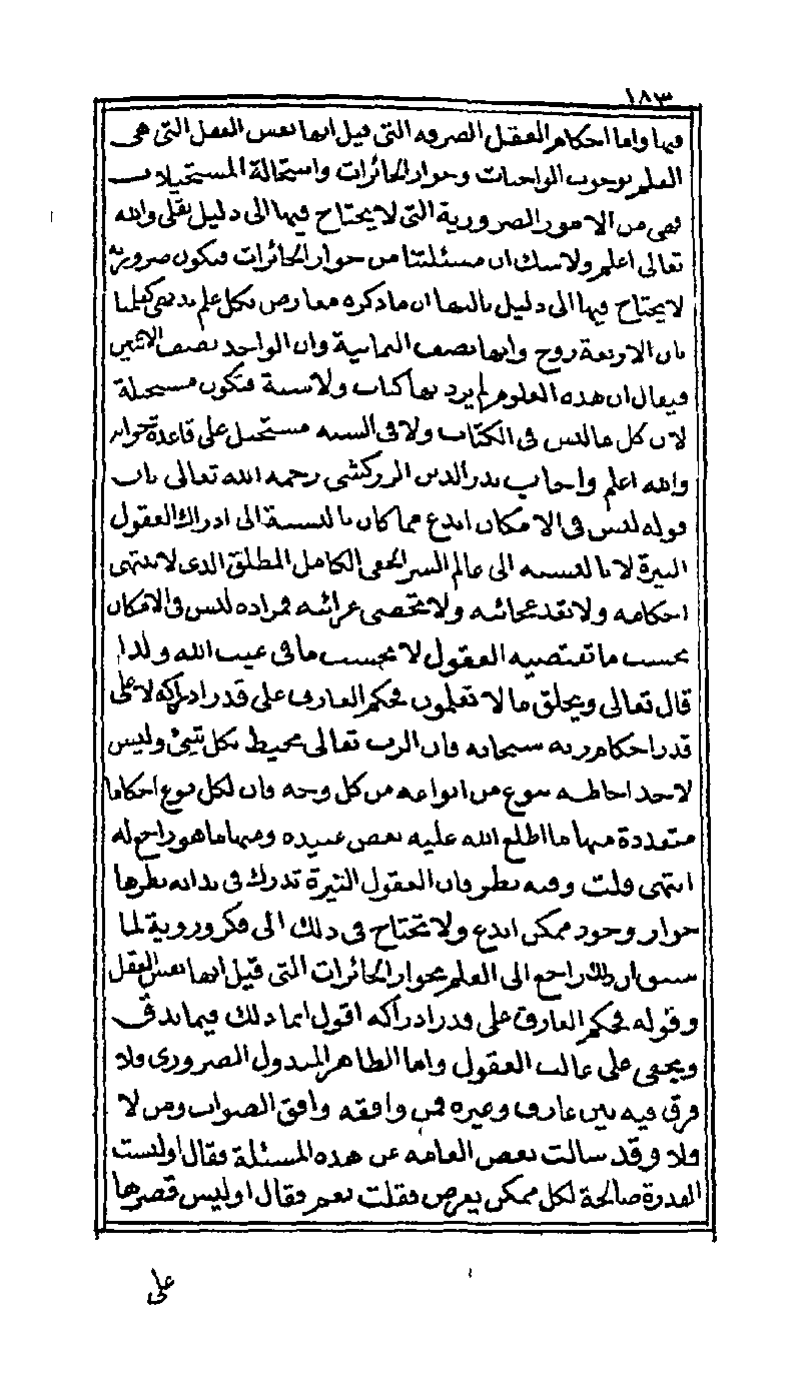 ١٨٣
فيها واما احكام العقل الصرفة التي قيل انها نفس العقل التي هي
العلم بوجوب الواجبات وجواز الجائزات واستحالة المستحيلات
فهي من الامور الضرورية التي لا يحتاج فيها الى دليل نقلي والله
تعالى اعلم ولا شك ان مسئلتنا من جواز الجائزات فتكون ضرورية
لا يحتاج فيها الى دليل ثالثها ان ما ذكره معارض بكل علم بديهي كعلمنا
بان الاربعة زوج وانها نصف الثمانية وان الواحد نصف الاثنين
فيقال ان هذه العلوم لم يرد بها كتاب ولا سنة فتكون مستحيلة
لان كل ما ليس في الكتاب ولا في السنه مستحيل على قاعدة جوابه
والله اعلم واجاب بدر الدين الزركشي رحمه الله تعالى بان
قوله ليس في الامكان ابدع مما كان بالنسبة الى ادراك العقول
النيرة لا بالنسبه الى عالم السر الخفي الكامل المطلق الذي لا تنتهي
احكامه ولا تنفد عجائبه ولا تحصى غرائبه فمراده ليس في الامكان
بحسب ما تقتضيه العقول لا بحسب ما في غيب الله ولذا
قال تعالى ويخلق ما لا تعلمون فحكم العارف على قدر ادراكه لا على
قدر احكام ربه سبحانه فان الرب تعالى محيط بكل شيئ وليس
لاحد احاطه بنوع من انواعه من كل وجه فان لكل نوع احكاما
متعددة منها ما اطلع الله عليه بعض عبيده ومنها ما هو راجع له
انتهى قلت وفيه نظر فان العقول النيرة تدرك في بداية نظرها
جواز وجود ممكن ابدع ولا تحتاج في ذلك الى فكر وروية لما
سبق ان ذلك راجع الى العلم بجواز الجائزات التي قيل انها نفس العقل
وقوله فحكم العارف على قدر ادراكه اقول انما ذلك فيما يدق
ويخفى على غالب العقول واما الظاهر المبذول الضروري فلا
فرق فيه بين عارف وغيره فمن وافقه وافق الصواب ومن لا
فلا وقد سالت بعض العامه عن هذه المسئلة فقال اوليست
القدرة صالحة لكل ممكن يعرض فقلت نعم فقال اوليس قصرها
على